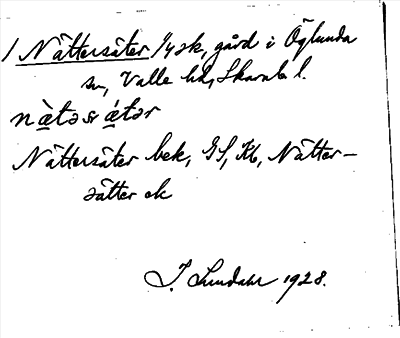 1 Nättersäter 1/4 sk, gård i Öglunda
sn, Valle hd, Skarab l.
nä̀təsä́tər
Nättersäter bek, GS, Kb, Nätter-
sätter ek
J. Lundahl 1928.